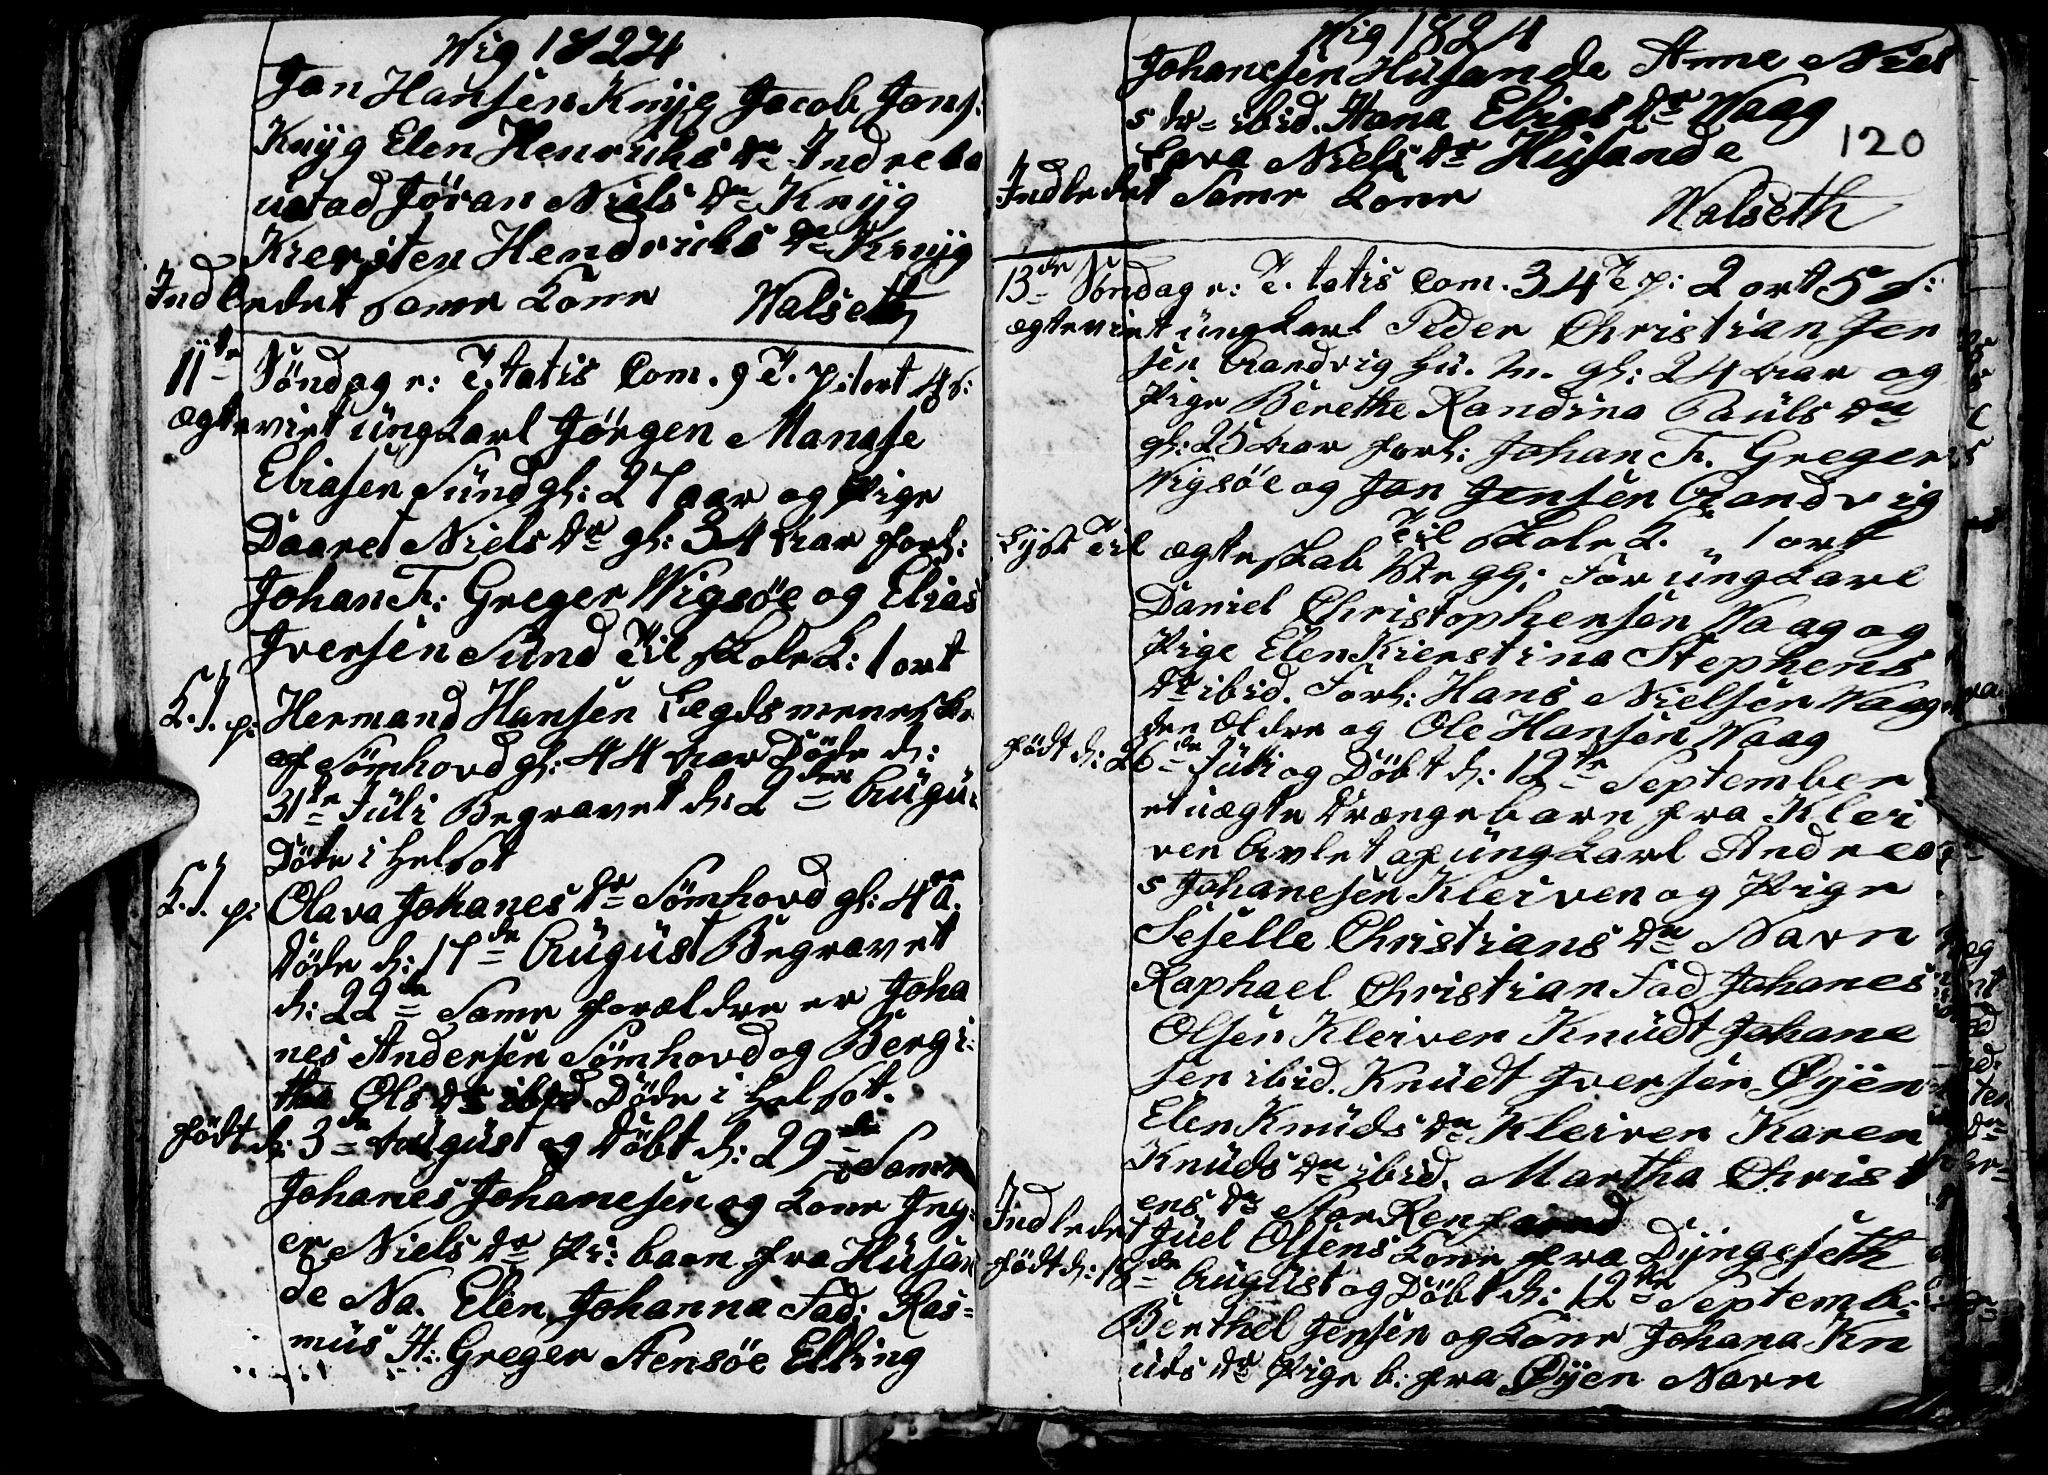 Wig 1824
Jon Hansen Knyg Jacob Jons:
Knyg Elen Henrichs Dr Indreba
ustad Jøran Niels Dr Knyg
Kiersten Hendrichs Dr Knyg
Indledet samme Kone Walseth
11te Søndag e: T. tatis Com. 9 T. p: 1 ort 4 s:
ægteviet ungkarl Jørgen Manase
Eliasen Sund gl: 27 aar og Pige
Daaret Niels Dr gl: 34 aar forl:
Johan Fr: Greger Wigsøe og Elias
Iversen Sund Til skole K: 1 ort
K.J. p: Hermand Hansen Legdsmeneske
af Sømhovd gl: 44 aar Døde d:
31te Juli Begravet d: 2den Augu:
Døde i Helsot
K.J. p: Olava Johanes Dr Sømhovd gl: 4 a.
Døde d: 17de August Begravet
d: 22de Same forældre er Joha
nes Andersen Sømhovd og Bergi:
tha Ols Dr ibid. Døde i Helsot.
født d: 3de August og Døbt d: 29de Same
Johanes Johanesen og Kone Ing:
er Niels Dr Pi: barn fra Husan
de Na. Elen Johanna Fad: Ras=
mus H: Greger Stensøe Elling
Wig 1824
120
Johanesen Husande Anne Niel
s dr ibid. Hana Elias Dr Waag
Lava Niels Dr Husande
Indledet Same Kone Walseth
13de Søndag e: T. tatis Com. 34 T p: 2 ort 5 s:
ægteviet ungkarl Peder Christian Jen
sen Sandvig Hu. m. gl: 24 aar og
Pige Berethe Randina Pauls Dr
gl: 25 aar forl: Johan Fr. Greger
Wigsøe og Jon Jensen Sandvig
Til skole K. 1 ort
Lyst Til ægteskab 1te g: For ungkarl
Daniel Christophersen Waag og
Pige Elen Kierstina Stephens
Dr ibid. Forl: Hans Nielsen Waag
den Oldre og Ole Hansen Waag
født d: 26de Juli og Døbt d: 12te September
et uægte Drængebarn fra Klei
ven Avlet af ungkarl Andrea
s Johanesen Kleiven og Pige
Seselle Christians Dr Navn
Raphael Christian Fad Johanes
Olsen Kleiven Knudt Johane
sen ibid. Knudt Iversen Øyen
Elen Knuds Dr Kleiven Karen
Knuds Dr ibid. Martha Christ
ens Dr
Indledet Juel Olsens Kone fra Dyngeseth
født d: 18de August og Døbt d: 12te Septemb:
Berthel Jensen og Kone Johana Kn
uds Dr Pige b: fra Øyen Navn